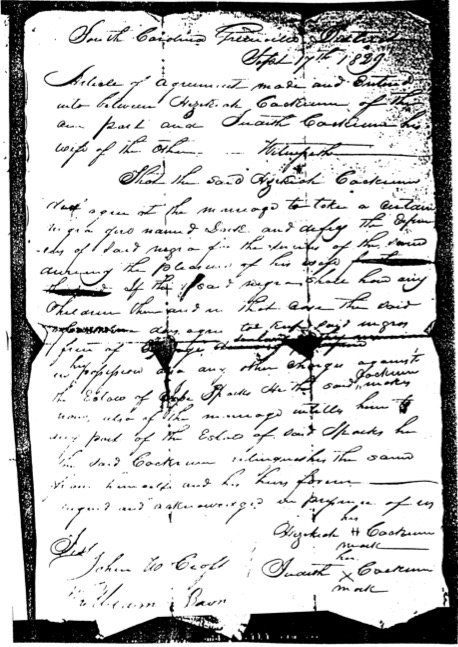 South Carolina Greenville District
Sept 17th 1829
Article of agreement made and Entered
into between Hezekiah Cockrum of the
one part and Judith Cockrum his
wife of the other — Witnesseth
That the said Hezekiah Cockrum
agree at the marriage to take a certain
negro named and defry the
of said negro for the of the same
dureing the pleasure of his wife
If the said negro shold have any
Children then and in that case the said
does agree to Keep said negros
free of
in his possession any other charges against
the Estate of Sparks He the said Cockrum makes
now, also if the marriage intitles him to
any part of the Estate of said Sparks he
the said Cockrum relinquishes the same
from himself and his heirs forever
signed and acknowledged in presence of us
his
Hezekiah H Cockrum
mark
Test
her
John W Croft
Judith X Cockrum
mark
William